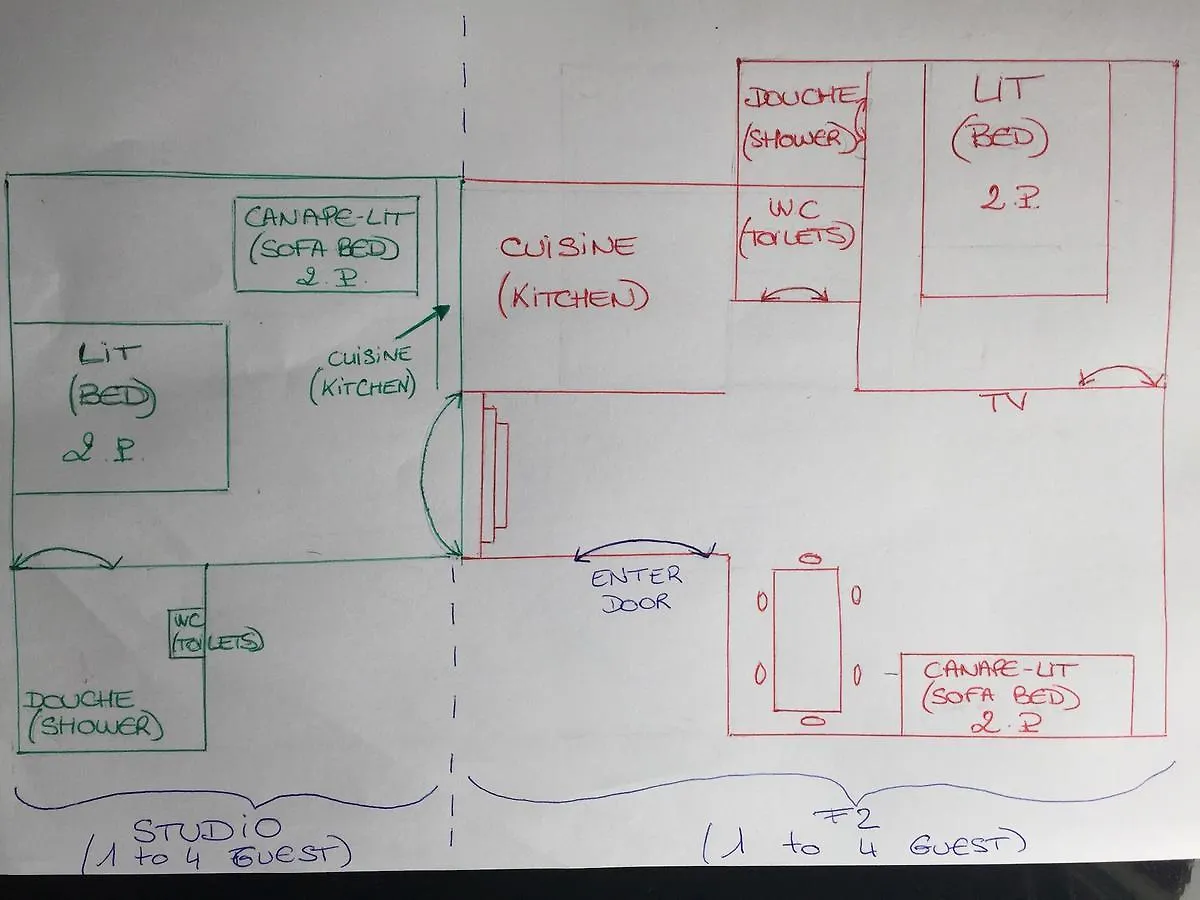 CANAPE-LIT
(SOFA BED)
2.P.
LIT
(BED)
2.P.
CUISINE
(KITCHEN)
WC
(TOILETS)
DOUCHE
(SHOWER)
STUDIO
(1 to 4 GUEST)
DOUCHE
(SHOWER)
WC
(TOILETS)
LIT
(BED)
2.P.
CUISINE
(KITCHEN)
TV
ENTER
DOOR
CANAPE-LIT
(SOFA BED)
2.P
F2
(1 to 4 GUEST)